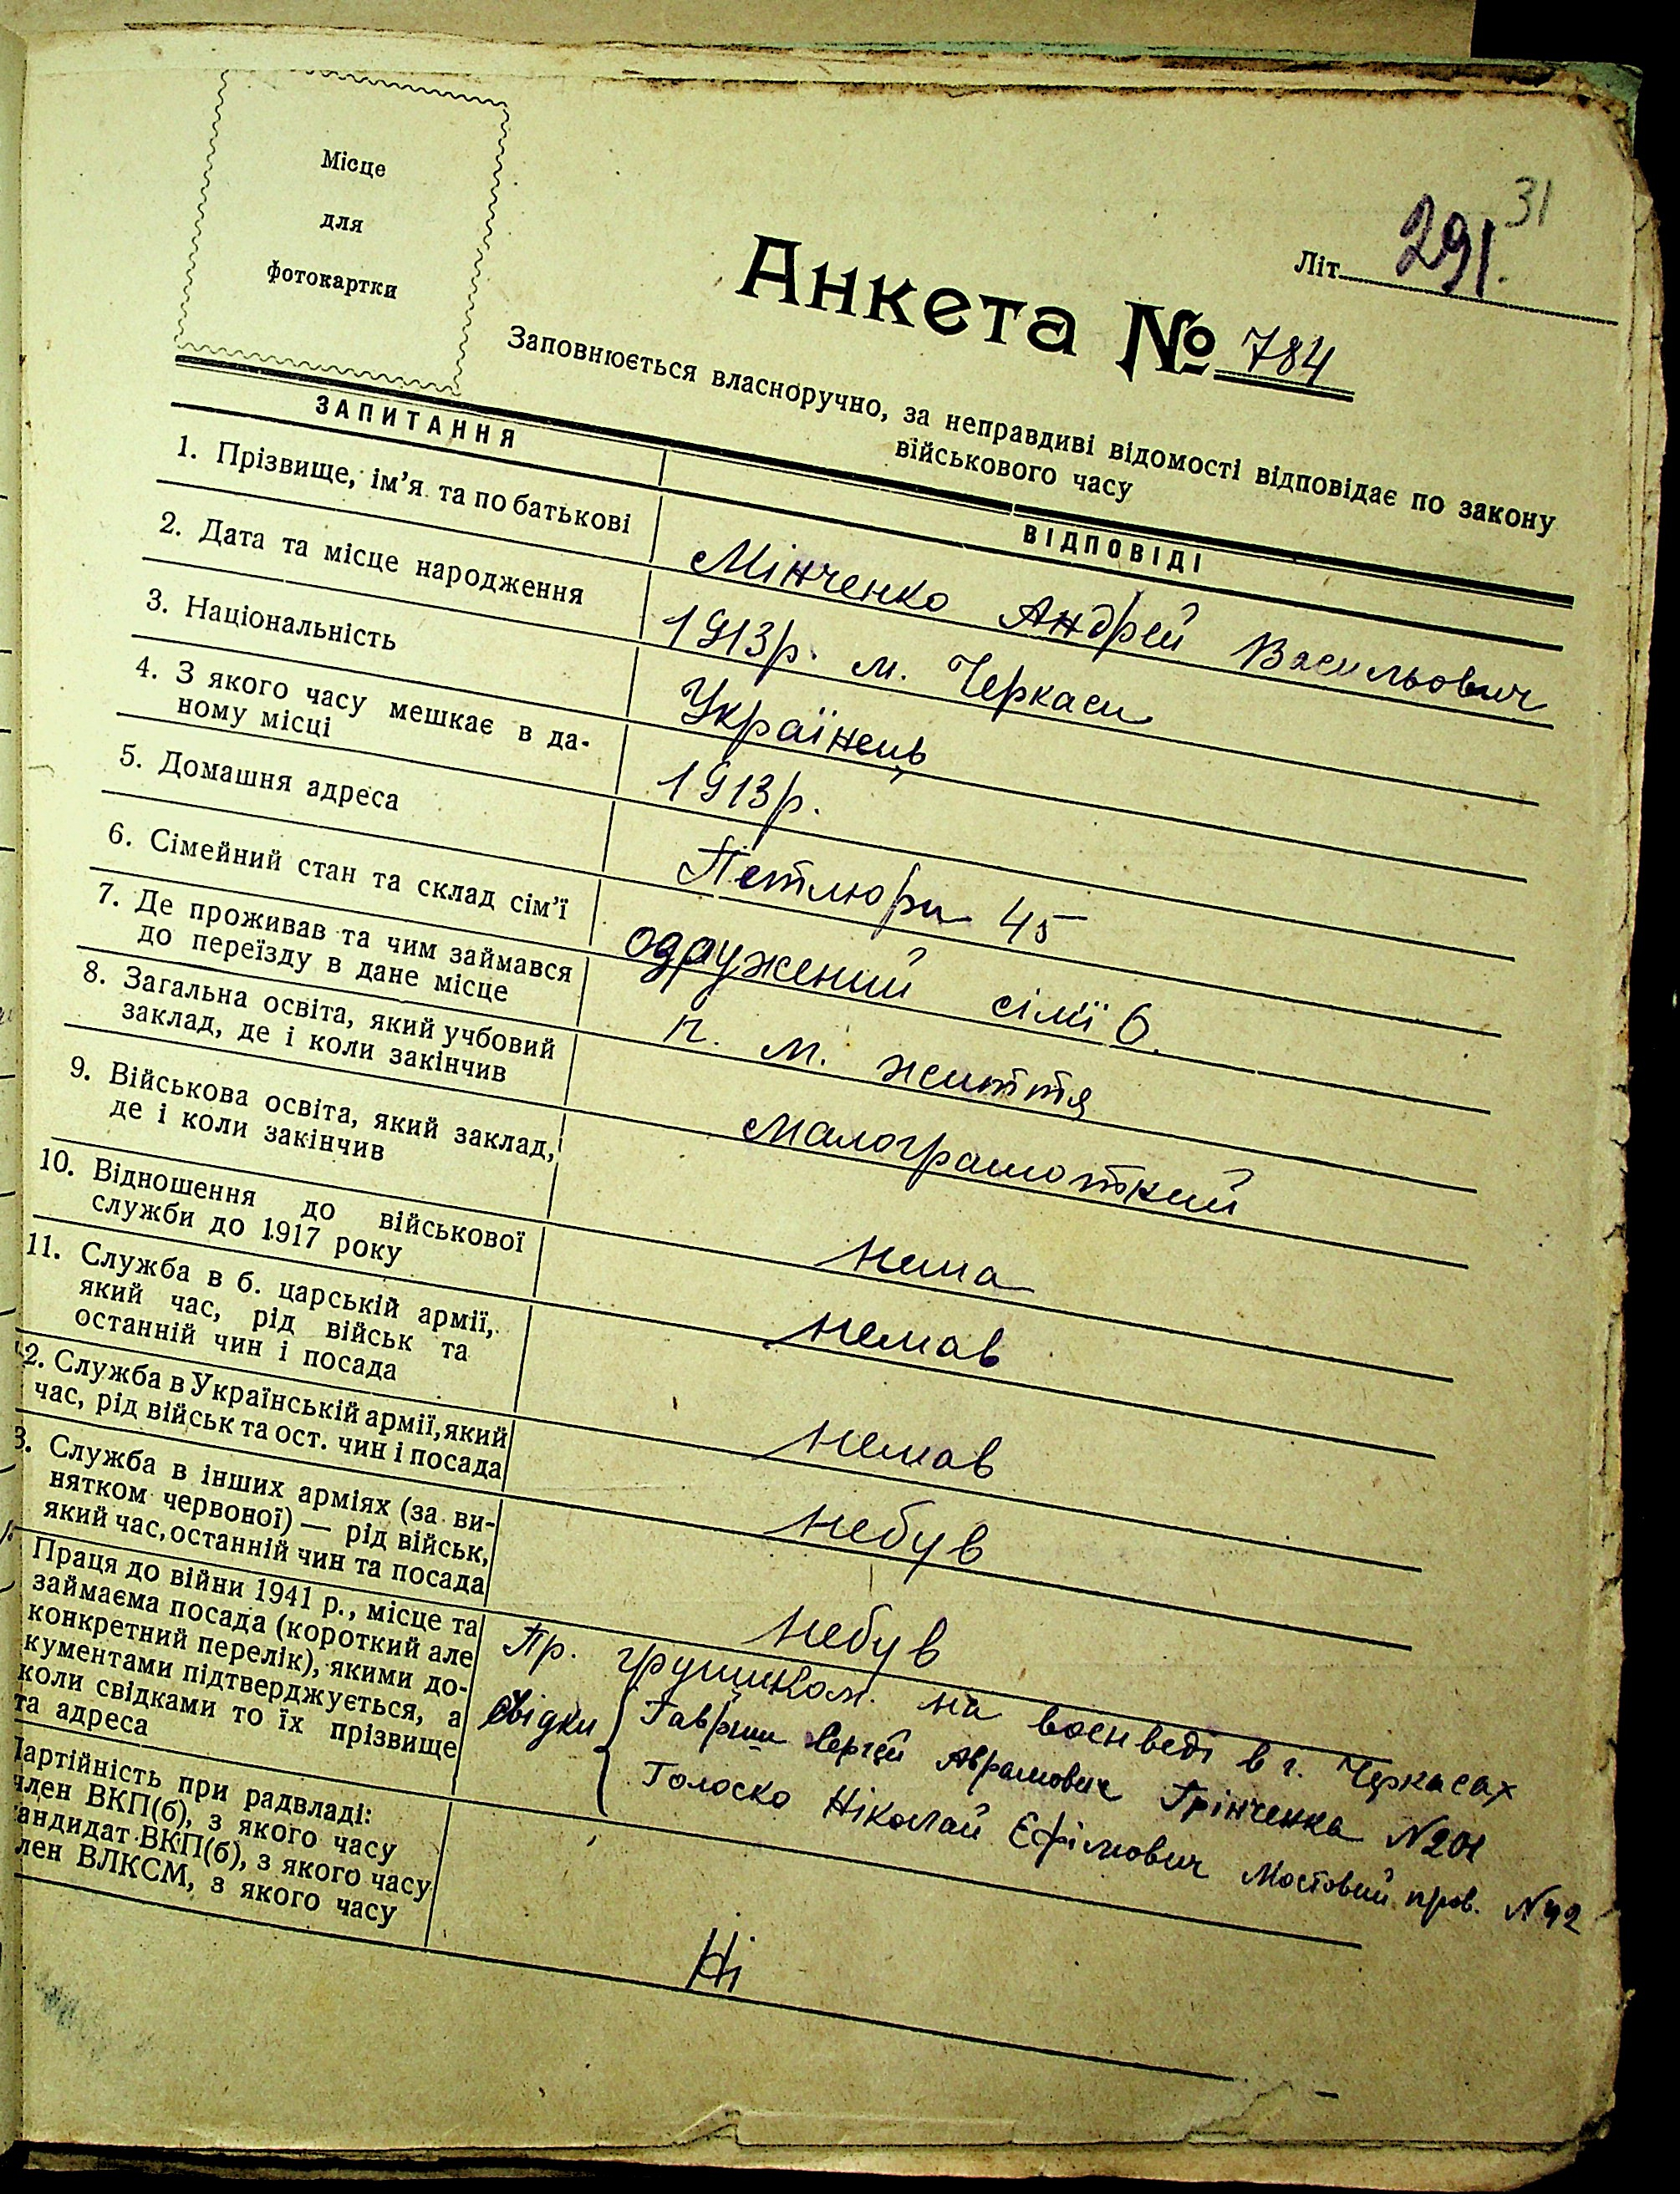 Місце
для
фотокартки
31
Літ. 291.
Анкета № 784
Заповнюється власноручно, за неправдиві відомості відповідає по закону
військового часу
ЗАПИТАННЯ
ВІДПОВІДІ
1. Прізвище, ім'я та по батькові
Мінченко Андрей Васильович
2. Дата та місце народження
1913р. м. Черкаси
3. Національність
Українець
4. З якого часу мешкає в да-
ному місці
1913р.
5. Домашня адреса
Петлюри 45
6. Сімейний стан та склад сім'ї
одружений сімї 6.
7. Де проживав та чим займався
до переїзду в дане місце
п. м. життя
8. Загальна освіта, який учбовий
заклад, де і коли закінчив
малограмотний
9. Військова освіта, який заклад,
де і коли закінчив
нема
10. Відношення до військової
служби до 1917 року
немав
11. Служба в б. царській армії,
який час, рід військ та
останній чин і посада
немав
2. Служба в Українській армії, який
час, рід військ та ост. чин і посада
небув
3. Служба в інших арміях (за ви-
нятком червоної) — рід військ,
який час, останній чин та посада
небув
Праця до війни 1941 р., місце та
займаєма посада (короткий але
конкретний перелік), якими до-
кументами підтверджується, а
коли свідками то їх прізвище
та адреса
Пр. на воєнведі в г. Черкасах
Свідки Гавриш Сергей Аврамович Грінченка N201
Голоско Ніколай Єфімович Мостовий пров. N42
Партійність при радвладі:
член ВКП(б), з якого часу
кандидат ВКП(б), з якого часу
член ВЛКСМ, з якого часу
Ні